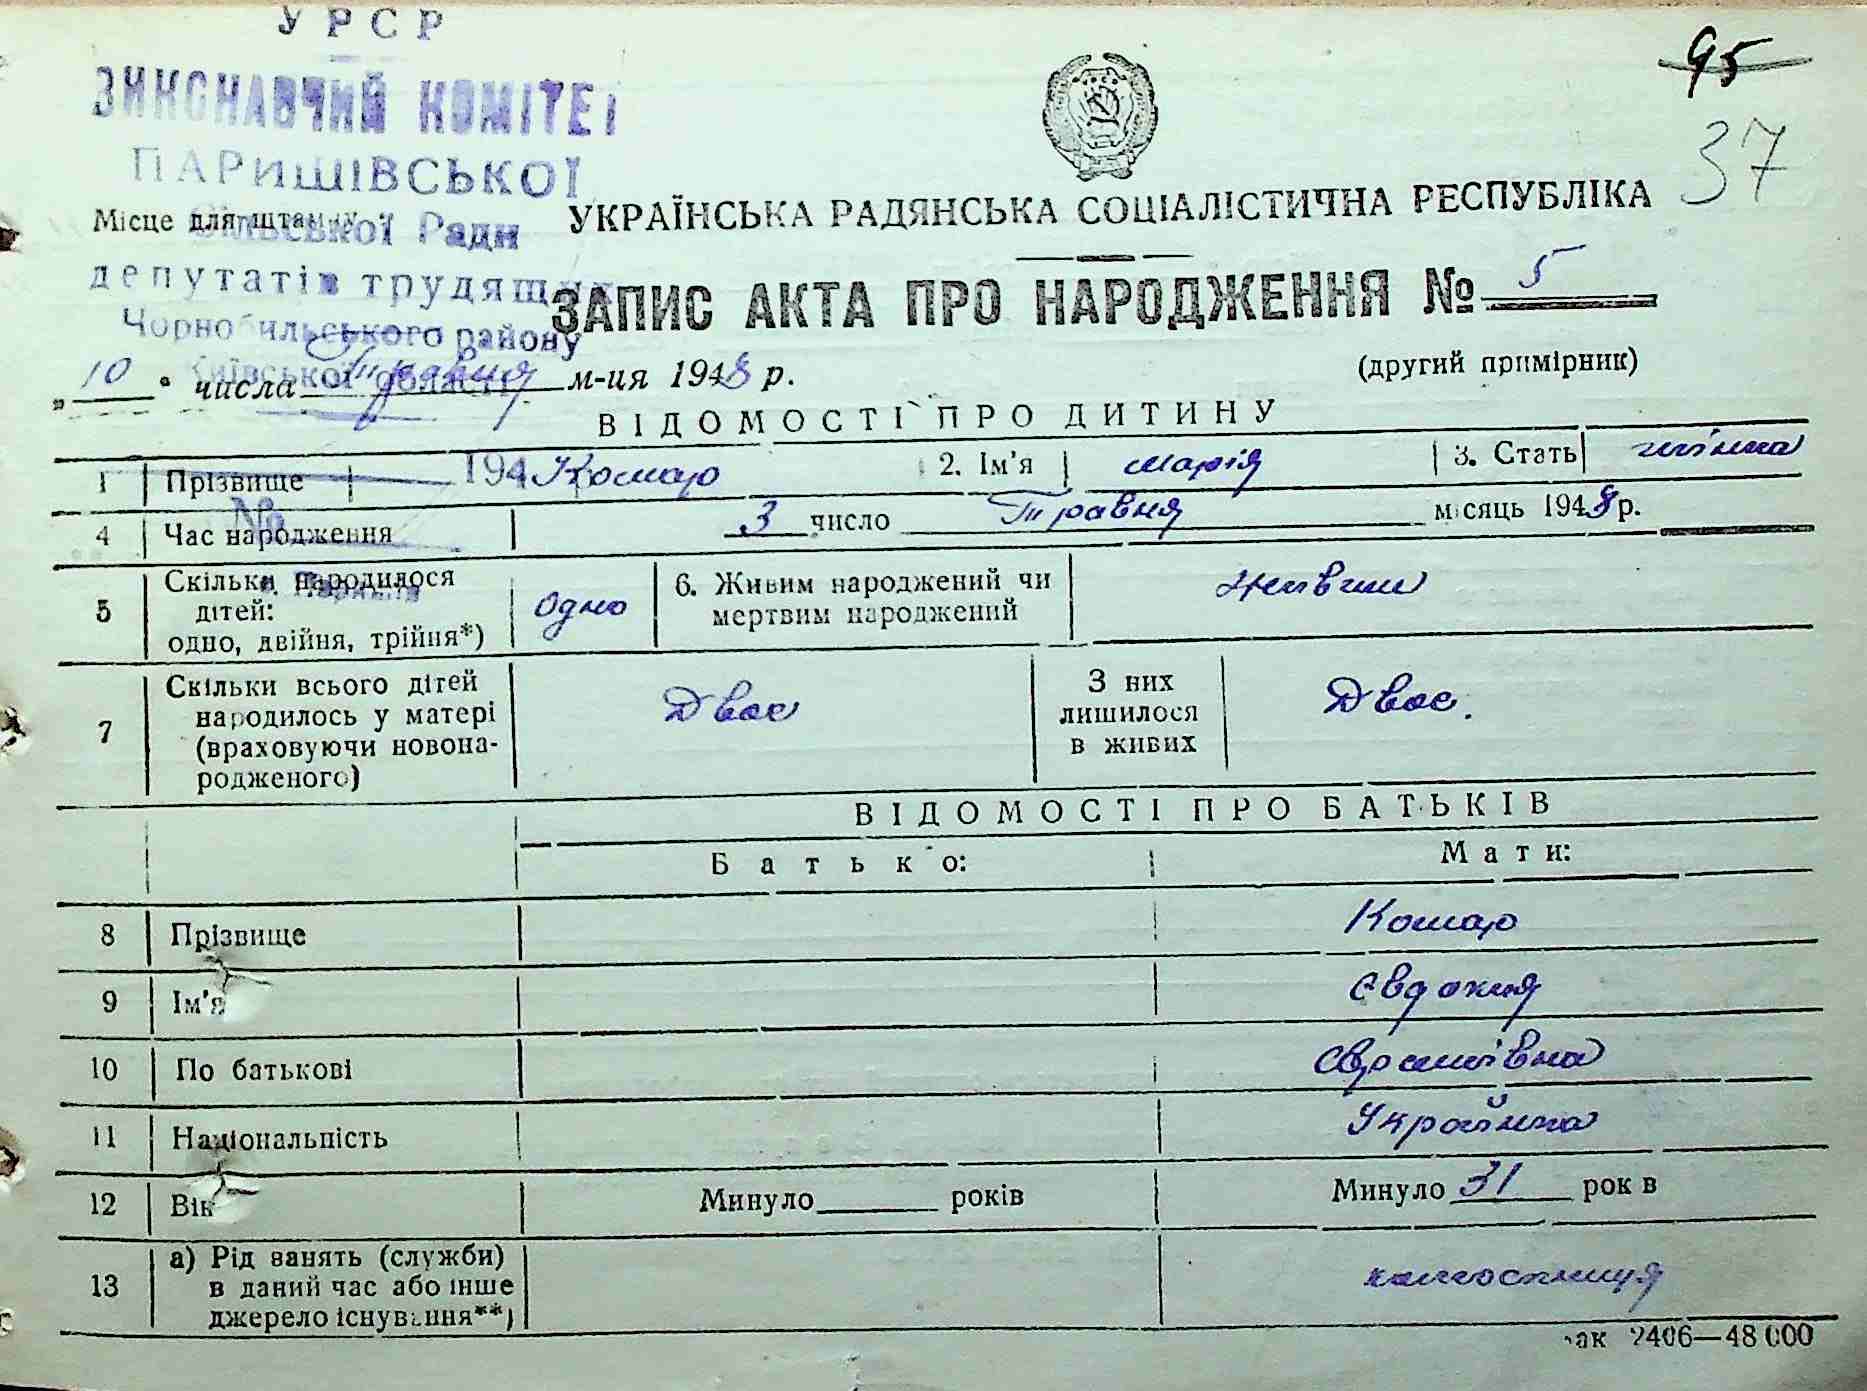 УРСР
ВИКОНАВЧИЙ КОМІТЕТ
ПАРИШІВСЬКОЇ
Сільської Ради
депутатів трудящих
Чорнобильського району
Київської області
194
№
с. Паришів
95
37
Місце для штампу
УКРАЇНСЬКА РАДЯНСЬКА СОЦІАЛІСТИЧНА РЕСПУБЛІКА
ЗАПИС АКТА ПРО НАРОДЖЕННЯ № 5
(другий примірник)
„10" числа Травня м-ця 1948 р.
ВІДОМОСТІ ПРО ДИТИНУ
1 Прізвище Комар 2. Ім'я Марія 3. Стать жіноча
4 Час народження 3 число Травня місяць 1948 р.
5 Скільки народилося
дітей:
одно, двійня, трійня*) одно 6. Живим народжений чи
мертвим народжений Живим
7 Скільки всього дітей
народилось у матері
(враховуючи новона-
родженого) Двоє З них
лишилося
в живих Двоє.
ВІДОМОСТІ ПРО БАТЬКІВ
Батько: Мати:
8 Прізвище Комар
9 Ім'я Євдокия
10 По батькові
11 Національність Українка
12 Вік Минуло років Минуло 31 років
13 а) Рід занять (служби)
в даний час або інше
джерело існування**) колгоспниця
зак 2406—48 000